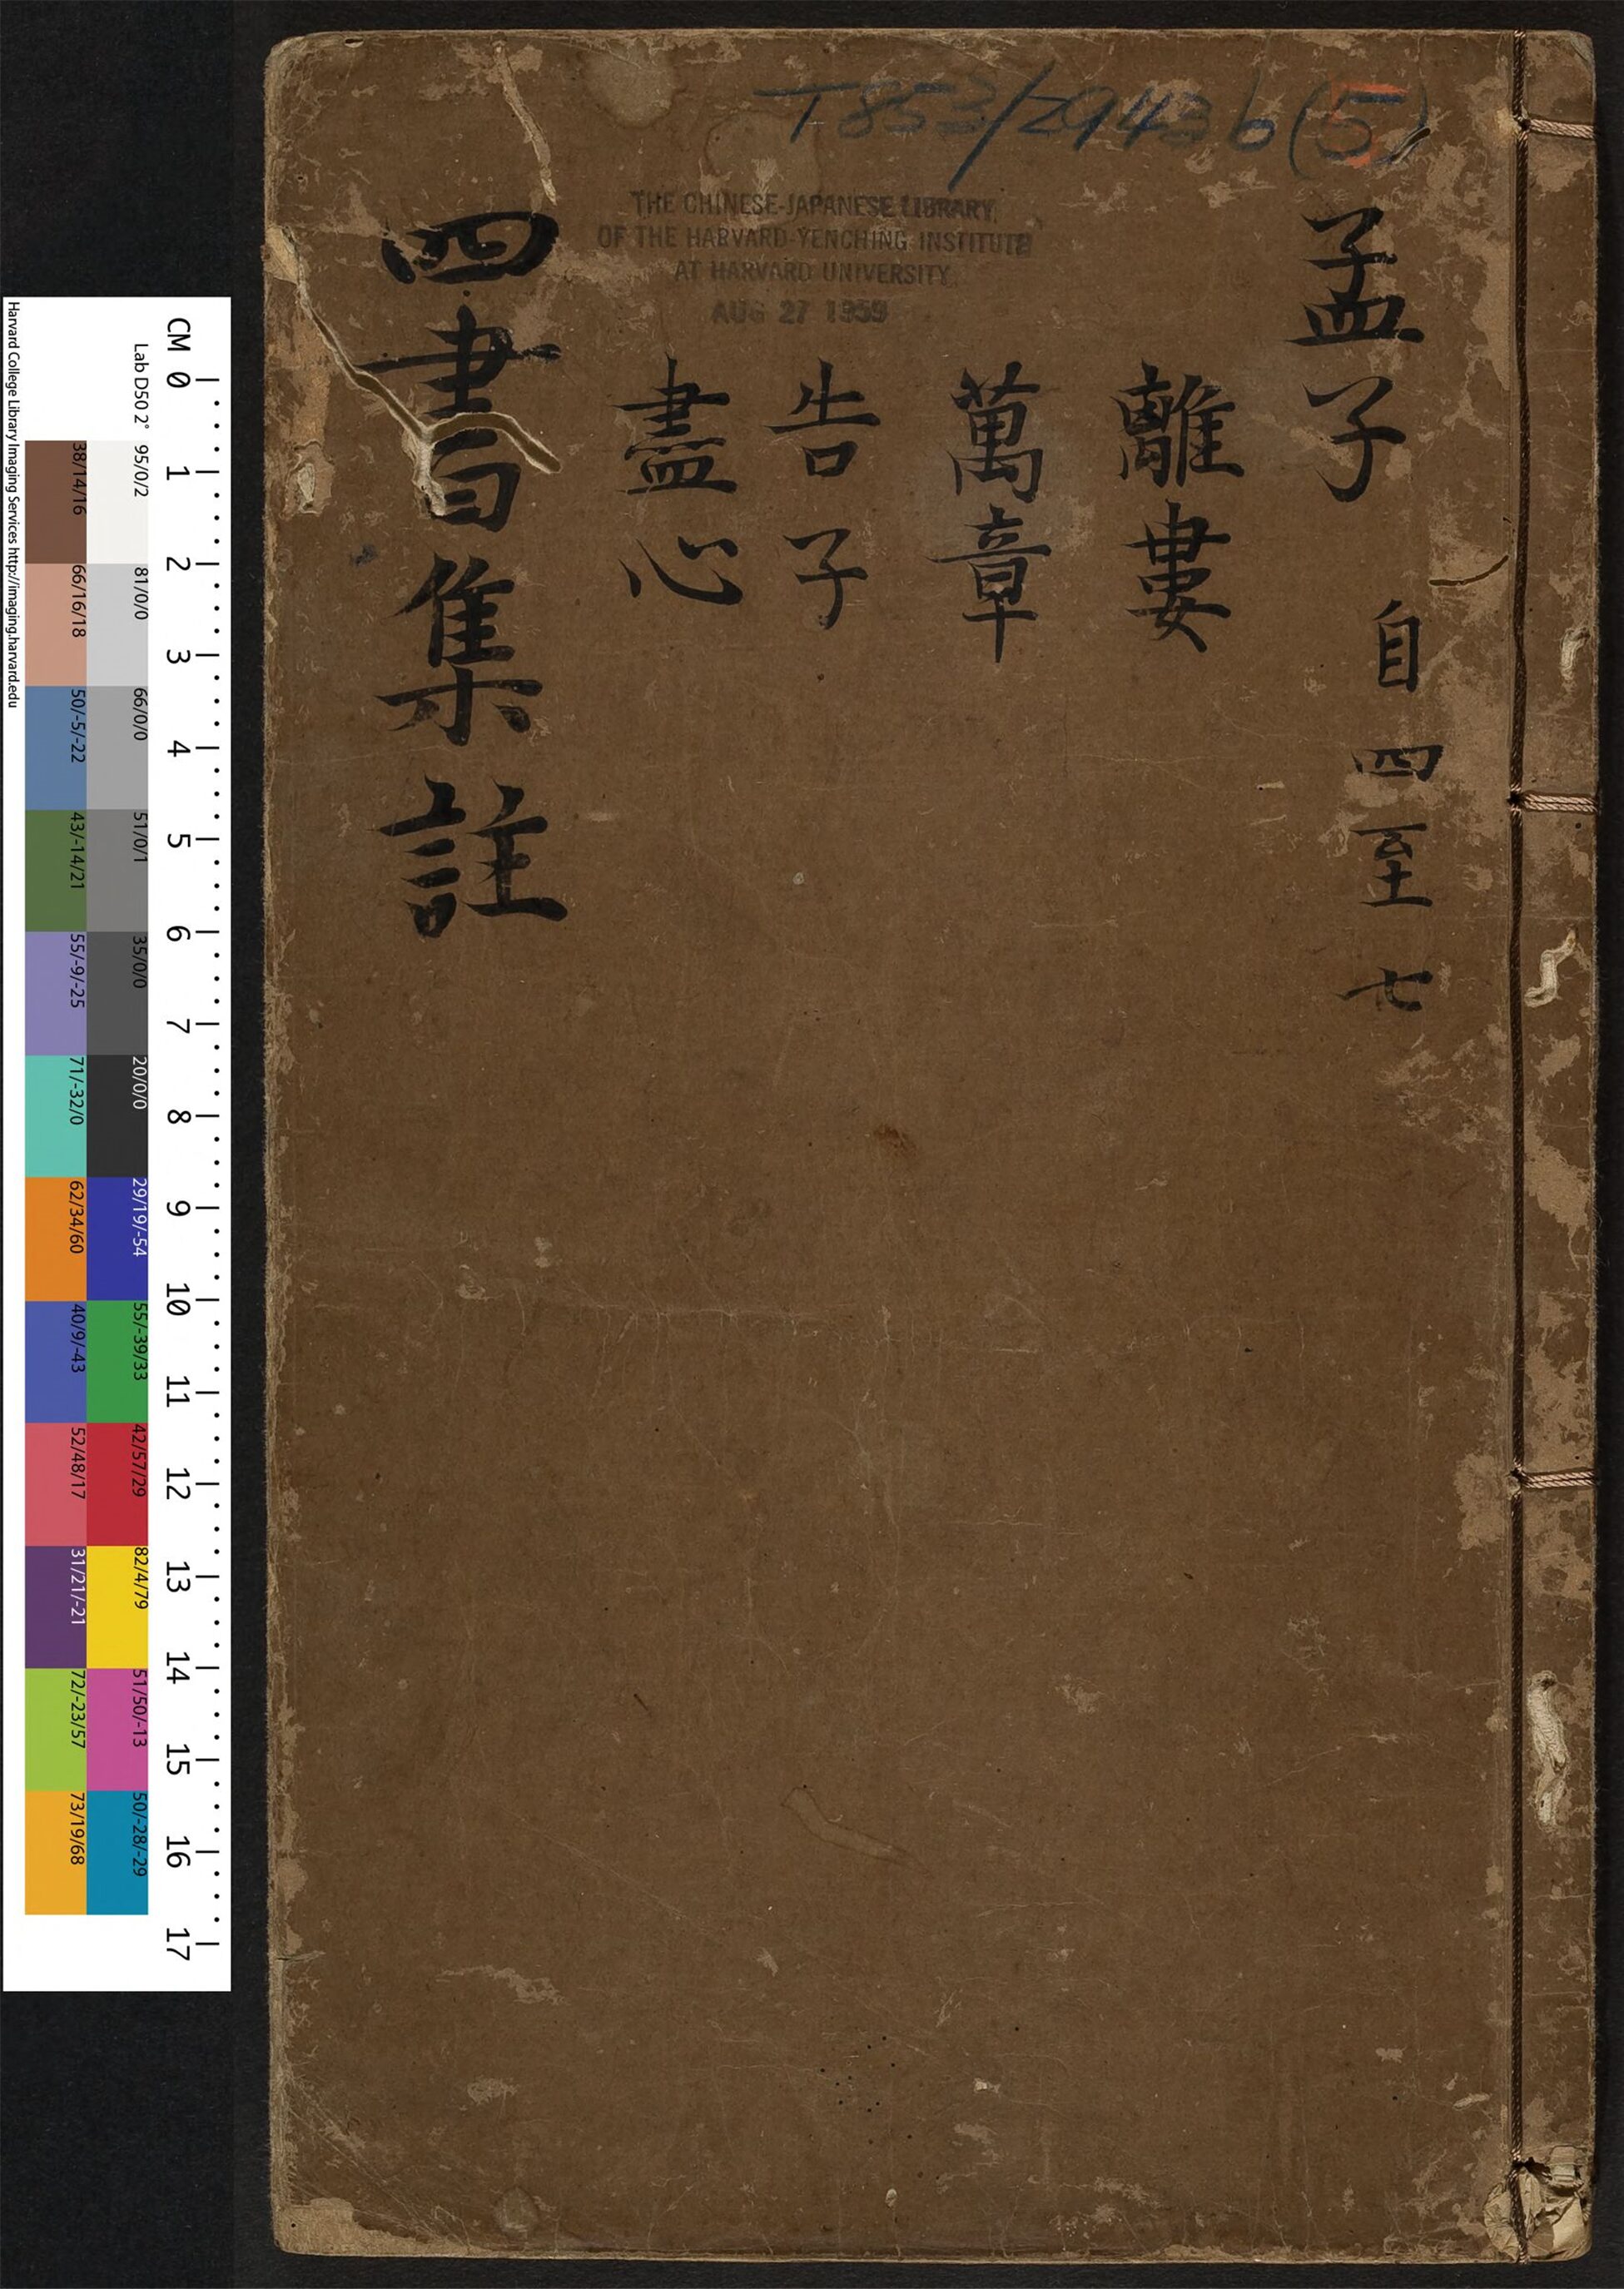 T853/2943b(5)
THE CHINESE-JAPANESE LIBRARY
OF THE HARVARD-YENCHING INSTITUTE
AT HARVARD UNIVERSITY
AUG 27 1959
孟子 自四至七
離婁
萬章
告子
盡心
四書集註
CM 0 1 2 3 4 5 6 7 8 9 10 11 12 13 14 15 16 17
Lab D50 2° 95/0/2 81/0/0 66/0/0 51/0/1 35/0/0 20/0/0 29/19/-54 55/-39/33 42/57/29 82/4/79 51/50/-13 50/-28/-29
38/14/16 66/16/18 50/-5/-22 43/-14/21 55/-9/-25 71/-32/0 62/34/60 40/9/-43 52/48/17 31/21/-21 72/-23/57 73/19/68
Harvard College Library Imaging Services http://imaging.harvard.edu